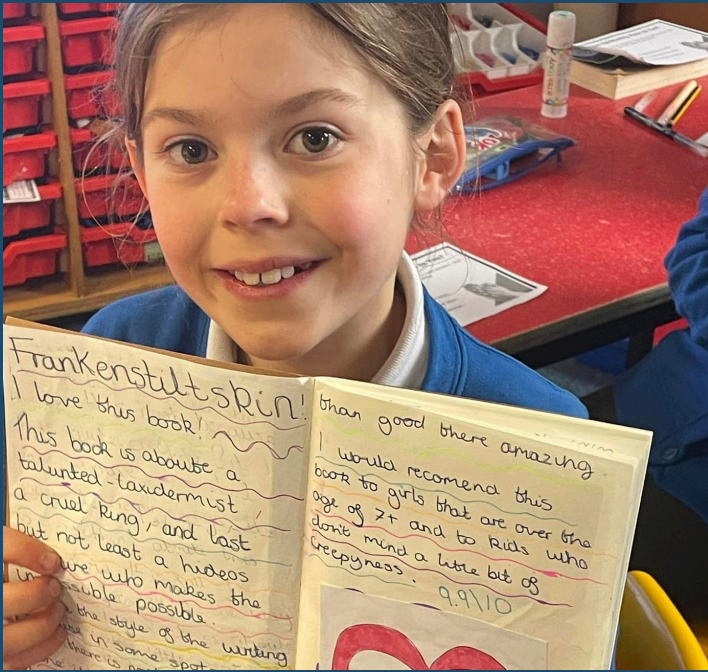 Frankenstiltskin!
I love this book!
This book is aboute a
talunted taxidermist
a cruel king, and last
but not least a hideos
who makes the
possible.
the style of the writing
in some spots
there is
than good there amazing
I would recomend this
book to girls that are over the
age of 7+ and to kids who
don't mind a little bit of
Creepyness.
9.9\10